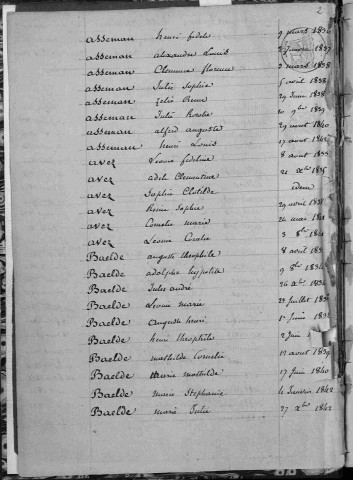 2
asseman henri fidele 9 mars 1836
asseman alexandre Louis 1837
asseman Clemence florence 2 mars 1838
asseman Julie Sophie 5 avril 1838
asseman Zelie 29 Juin 1838
asseman Julie Rosalie 20 9bre 1839
asseman alfred auguste 29 aout 1840
asseman henri Louis 17 aout 1842
avez Leonie fideline 8 aout
avez adele Clementine 21 Xbre
avez Sophie Clotilde idem
avez Reine Sophie 29 avril
avez Cornelie marie 24 mai
avez Leonie Coralie 3 8bre
Baelde auguste theophile 8 avril
Baelde adolphe hypolite 9 8bre
Baelde Jules andré 26 Xbre
Baelde Leonie marie 22 Juillet
Baelde auguste henri 1er Juin
Baelde henri theophile 2 Juin
Baelde mathilde Cornelie 12 aout 1839
Baelde marie mathilde 17 Juin 1840
Baelde marie Stephanie 4 Janvier 1842
Baelde marie Julie 27 Xbre 1842